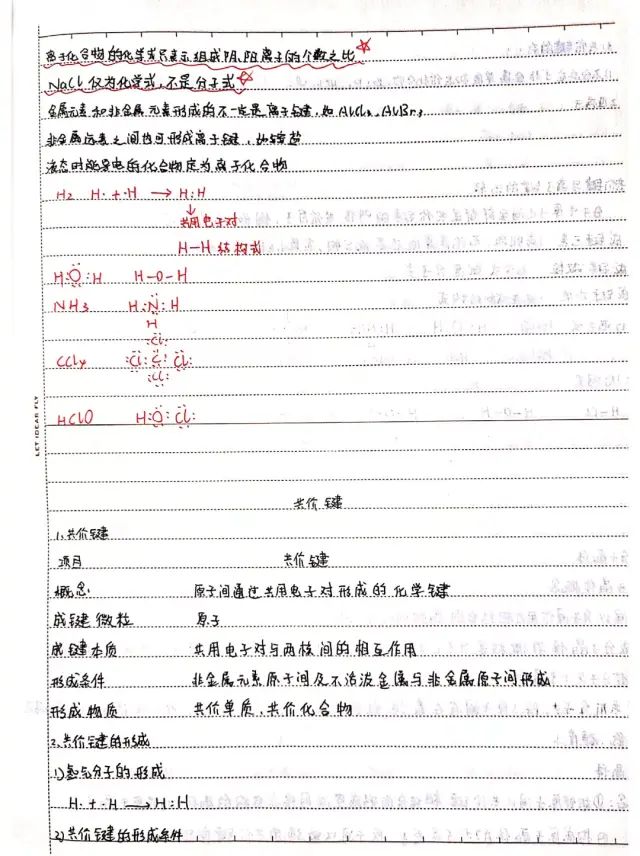 离子化合物的化学式只表示组成阴、阳离子的个数之比
NaCl 仅为化学式，不是分子式
金属元素和非金属元素形成的不一定是离子键，如 AlCl₃、AlBr₃
非金属元素之间也可形成离子键，如铵盐
液态时能导电的化合物定为离子化合物
H₂ H·+·H → H:H
共用电子对
H—H 结构式
H:O:H H-O-H
NH3 H:N:H
H
:Cl:
CCl4 :Cl:C:Cl:
:Cl:
HClO H:O:Cl:
LET IDEAR FLY
共价键
1.共价键
项目 共价键
概念 原子间通过共用电子对形成的化学键
成键微粒 原子
成键本质 共用电子对与两核间的相互作用
形成条件 非金属元素原子间及不活泼金属与非金属原子间形成
形成物质 共价单质、共价化合物
2.共价键的形成
1)氢气分子的形成
H·+·H → H:H
2)共价键的形成条件